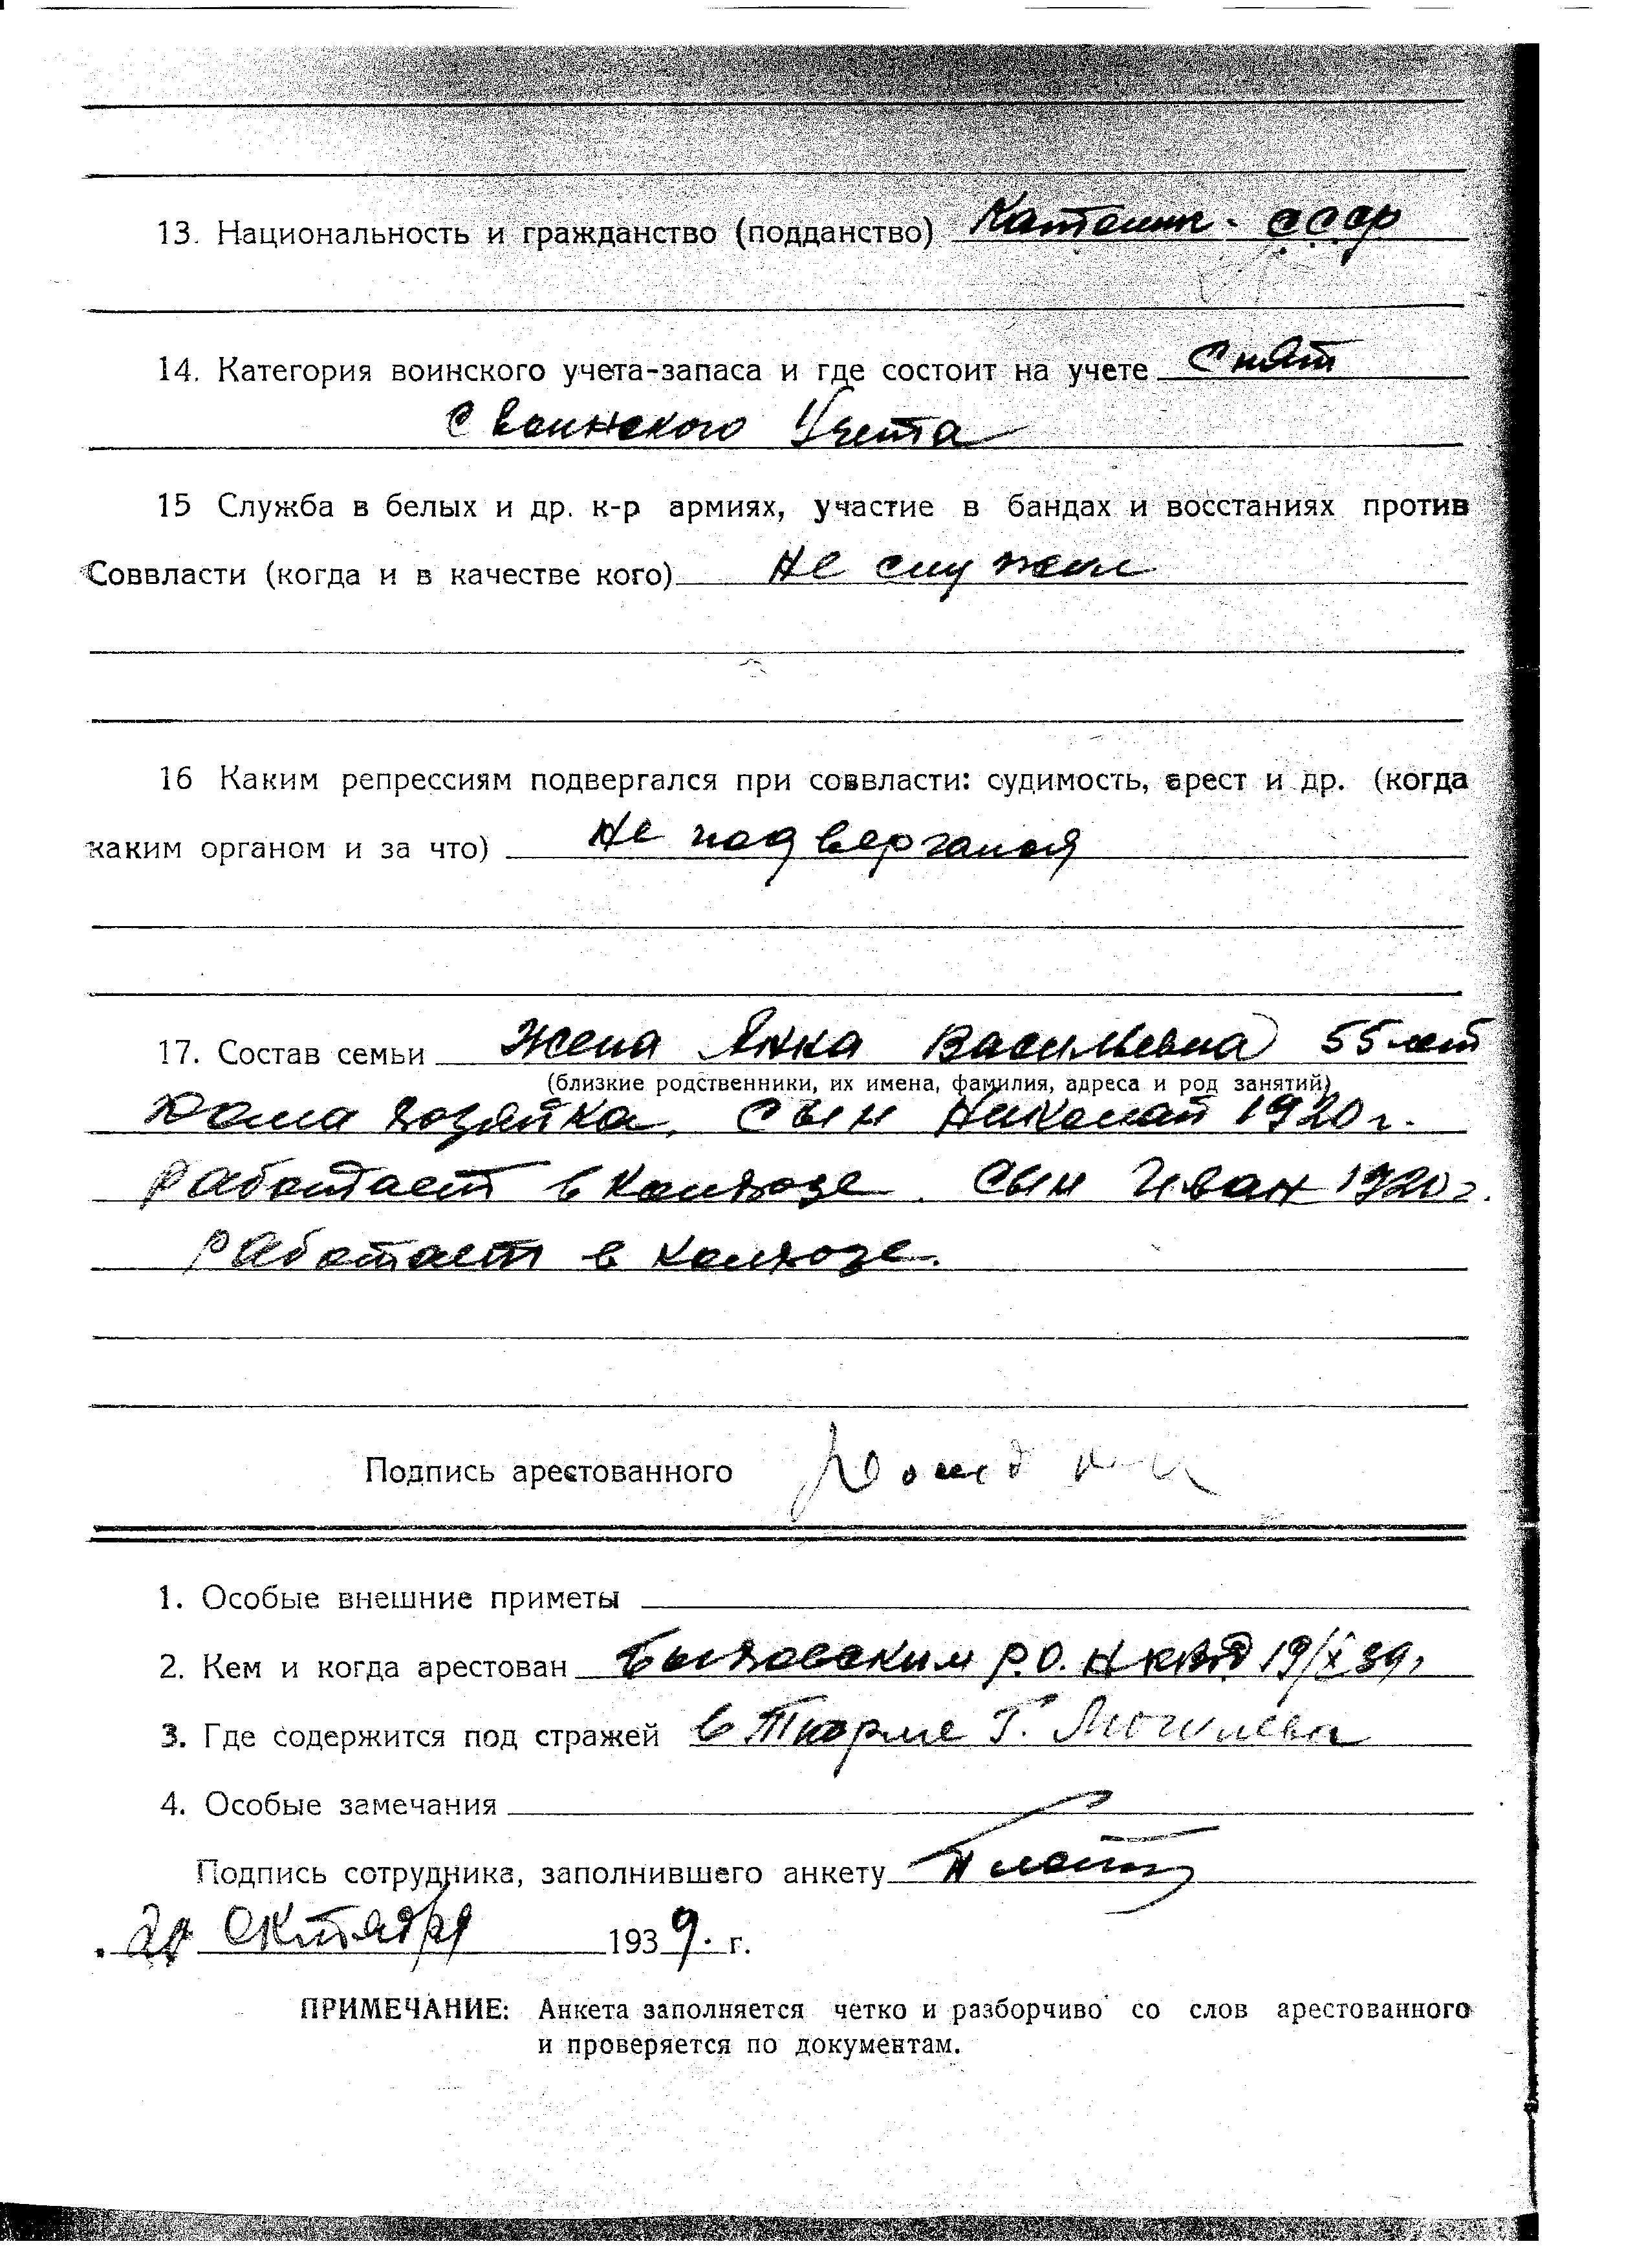 13. Национальность и гражданство (подданство) Католик - СССР
14. Категория воинского учета-запаса и где состоит на учете Снят
с воинского Учета
15 Служба в белых и др. к-р армиях, участие в бандах и восстаниях против
Соввласти (когда и в качестве кого) Не служил
16 Каким репрессиям подвергался при соввласти: судимость, арест и др. (когда
каким органом и за что) Не подвергался
17. Состав семьи Жена Анна Васильевна 55 лет
(близкие родственники, их имена, фамилия, адреса и род занятий)
Дома хозяйка, Сын Николай 1920 г.
Работает в колхозе. Сын Иван 1920 г.
Работает в колхозе.
Подпись арестованного
1. Особые внешние приметы
2. Кем и когда арестован Быховским Р.О. НКВД 19/X 39.
3. Где содержится под стражей в Тюрме Г. Могилева
4. Особые замечания
Подпись сотрудника, заполнившего анкету
октября 1939. г.
ПРИМЕЧАНИЕ: Анкета заполняется четко и разборчиво со слов арестованного
и проверяется по документам.